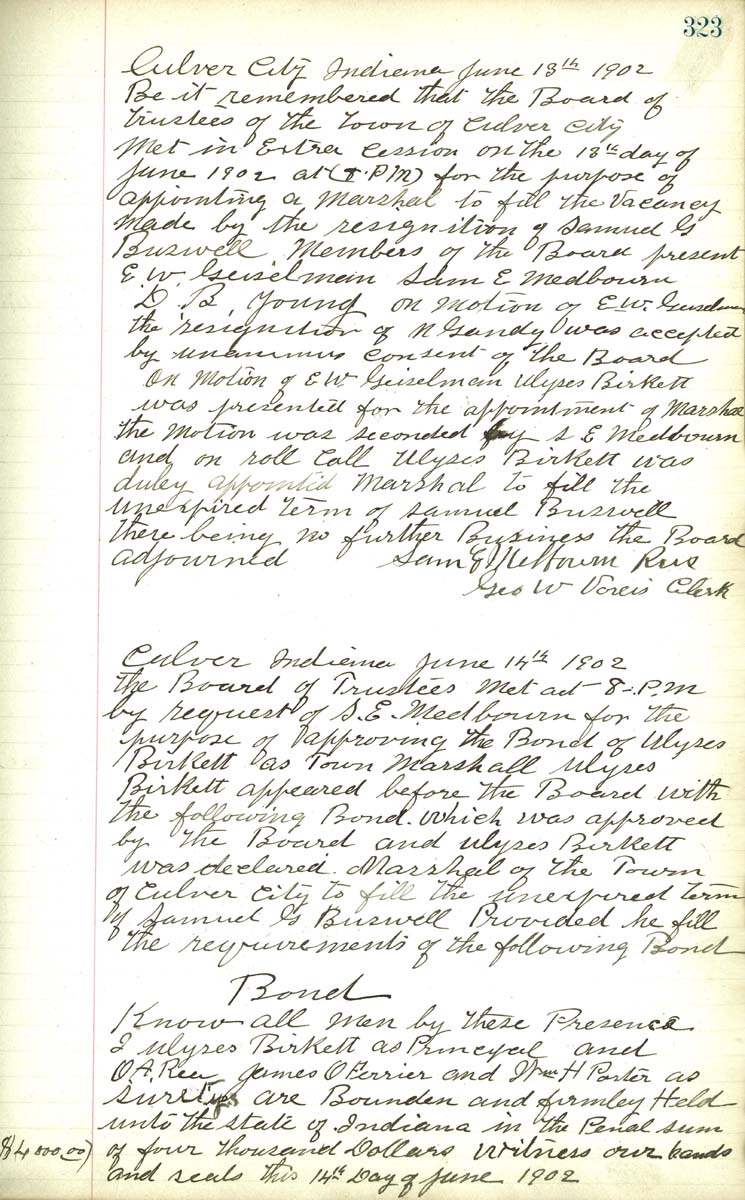 323
Culver City Indiana June 13th 1902
Be it remembered that the Board of
Trustees of the Town of Culver City
Met in Extra Cession on the 13th day of
June 1902 at (8.P.M) for the purpose of
appointing a Marshal to fill the Vacancy
made by the resignition of Samuel G
Buswell Members of the Board present
E.W. Geiselman Sam E Medbourn
D.B. Young on motion of E.W. Geiselman
the resignition of N Gandy was accepted
by unanimus consent of the Board
On Motion of E W Geiselman Ulyses Birkett
was presented for the appointment of Marshal
the Motion was seconded by S E Medbourn
and on roll Call Ulyses Birkett was
duley appointed Marshal to fill the
unexpired term of Samuel Buswell
there being no further Business the Board
adjourned Sam E Medbourn Pres
Geo W Voreis Clerk
Culver Indiana June 14th 1902
the Board of Trustees Met at 8-P.M
by request of S.E. Medbourn for the
purpose of approving the Bond of Ulyses
Birkett as Town Marshall Ulyses
Birkett appeared before the Board with
the following Bond. which was approved
by the Board and Ulyses Birkett
was declared. Marshal of the Town
of Culver City to fill the unexpired term
of Samuel G Buswell Provided he fill
the requirements of the following Bond
Bond
Know all men by these Presence
I Ulyses Birkett as Principal and
O.A. Rea James O Ferrier and Wm H Porter as
Surrtys are Bounden and firmley Held
unto the state of Indiana in the Penal sum
$4000.00) of four thousand Dollars Witness our hands
and seals this 14th Day of June 1902